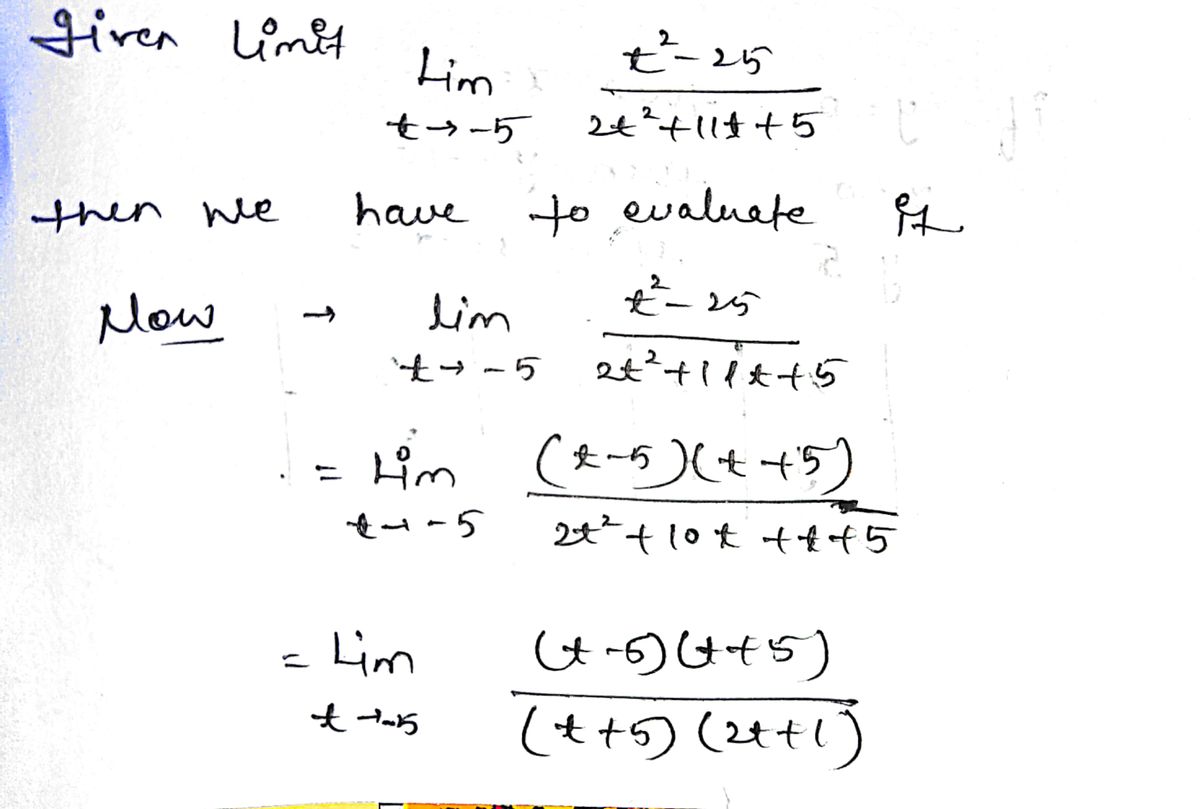 Given limit
Lim t→-5 (t²-25)/(2t²+11t+5)
then we have to evaluate it
Now → lim t→-5 (t²-25)/(2t²+11t+5)
= Lim t→-5 (t-5)(t+5)/(2t²+10t+t+5)
= Lim t→-5 (t-5)(t+5)/(t+5)(2t+1)